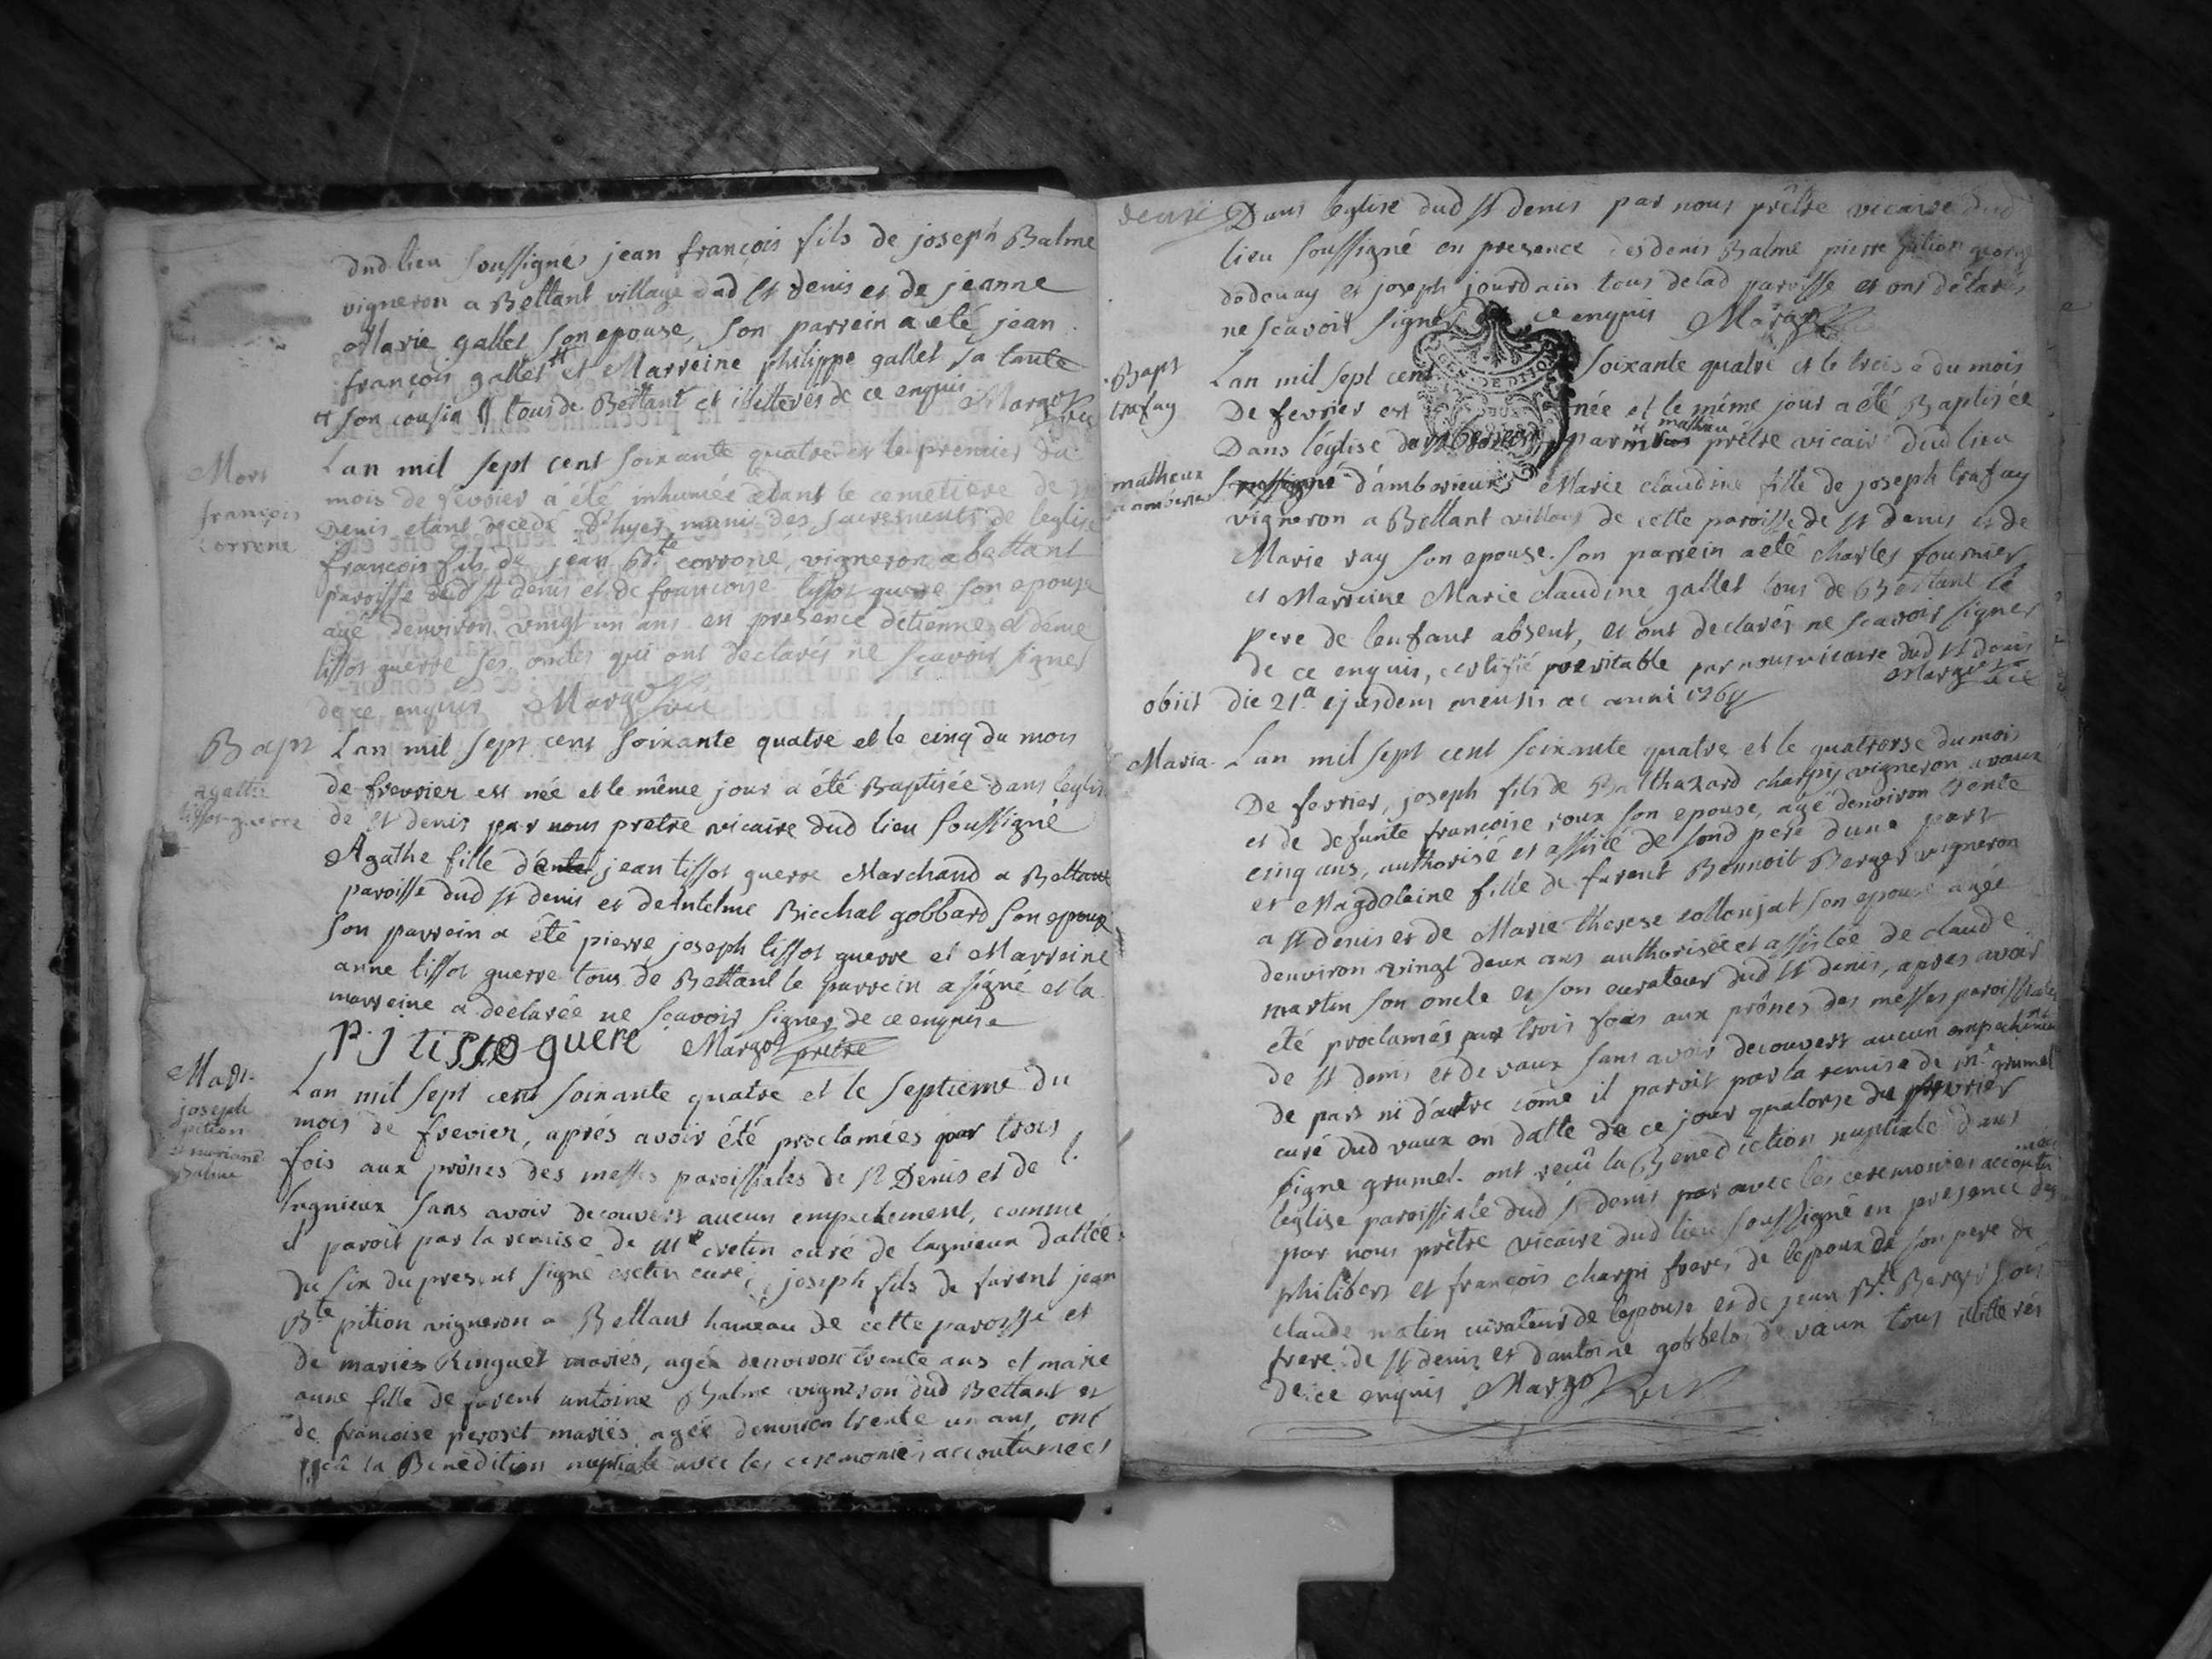 dud lieu soussigné, jean françois fils de joseph Balme
vigneron a Bettant village dud st denis et de jeanne
Marie gallet son epouse, son parrein a eté jean
françois gallet # et Marreine philippe gallet sa tante
# son cousin tous de Bettant et illiterés de ce enquis Margot vic
Mort
françois
corrone
Lan mil sept cent soixante quatre et le premier du
mois de fevrier a été inhumée dans le cemetiere de st
Denis etant decedé D'hyer munis des sacrements de leglise
françois fils de jean Bte. corrone, vigneron a bettant
paroisse dud st denis et de francoise tissot guerre son epouse
agé denviron vingt un ans en presence detienne et
tissot guerre ses oncles qui ont declarés ne scavoir signer
de ce enquis Margot vic
Bapt
agathe
tissot guerre
Lan mil sept cent soixante quatre et le cinq du mois
de frevrier est née et le même jour a été Baptisée Dans leglise
de st denis par nous pretre vicaire dud lieu soussigné
Agathe fille de jean tissot guerre Marchand a Bettant
paroisse dud st denis et dentelme Bicchal gobbard son epouse
son parrein a été pierre joseph tissot guerre et Marreine
anne tissot guerre tous de Bettant le parrein a signé et la
marreine a declarée ne scavoir signer de ce enquise
P. J tisso guere Margot pretre
Mari.
joseph
pition
et mariane
Balme
Lan mil sept cent soixante quatre et le septieme du
mois de frevier, aprés avoir été proclamées par trois
fois aux prônes des messes paroissiales de st Denis et de l.
lagnieux sans avoir decouvert aucun empechement, comme
il paroit par la remise de mr cretin curé de lagnieux dattée
du six du present signé cretin curé, joseph fils de furent jean
Bte pition vigneron a Bettant hameau de cette paroisse et
de maries Ringuet mariés, agéé denviron trente ans et marie
anne fille de furent antoine Balme vigneron dud Bettant et
de françoise peroset mariés agée denviron trente un ans, ont
reçu la Benedition nuptiale avec les ceremonies accoutumées
deuxe Dans leglise dud st denis par nous prêtre vicaire dud
lieu soussigné en presence des denis Balme pierre pition george
dodouay et joseph jourdain tous delad paroisse et ont declarés
ne scavoir signer de ce enquis Margot
Bapt
trafay
Lan mil sept cent soixante quatre et le treize du mois
De fevrier est née et le même jour a été Baptisée
Dans léglise par mr matheu prêtre vicaire dud lieu
matheux
a amberieu
soussigné d'amberieux Marie claudine fille de joseph trafay
vigneron a Bettant village de cette paroisse de st denis et de
Marie ray son epouse. son parrein a eté charles fournier
et Marreine Marie claudine gallet tous de Bettant le
pere de lenfant absent, et ont declarés ne scavoir signer
de ce enquis, certifié veritable par nous vicaire dud st denis
Margot vic
obiit die 21a ejusdem mensis ac anni 1764
Maria.
Lan mil sept cent soixante quatre et le quatorse du mois
De fevrier, joseph fils de Balthazard charpy vigneron a vaux
et de defunte françoise roux son epouse, agé denviron trente
cinq ans, authorisé et assisté de sond pere dune part
et Magdeleine fille de furent Bennoit Berger vigneron
a st denis et de Marie therese collonjat son epouse agée
denviron vingt deux ans authorisée et assistée de claude
martin son oncle et son curateur dud st denis, apres avoir
eté proclamés par trois fois aux prônes des messes paroissiales
de st denis et de vaux sans avoir decouvert aucun empechement
de part ni d'autre come il paroit par la remise de mr. grumel
curé dud vaux en datte de ce jour quatorse du fevrier
signe grumel. ont reçu la Benediction nuptiale dans
leglise paroissiale dud st denis avec les ceremonies accoutumées
par nous prêtre vicaire dud lieu soussigné en presence des
philibert et francois charpi freres de lepoux de son pere de
claude matin curateur de lepouse et de jean Bte. Berger son
frere de st denis et d'antoine gobbelo de vaux tous illiterés
de ce enquis Margot vic